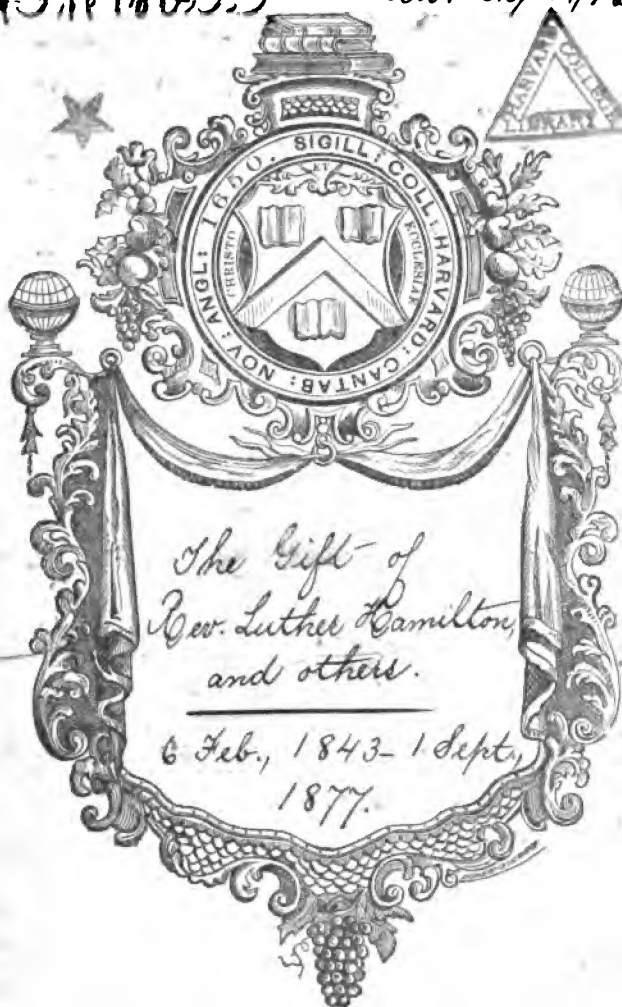 HARVARD COLLEGE
LIBRARY
SIGILL: COLL: HARVARD: CANTAB: NOV: ANGL: 1650.
ET
CHRISTO
ECCLESIAE
The Gift of
Rev. Luther Hamilton,
and others.
6 Feb., 1843 - 1 Sept.,
1877.